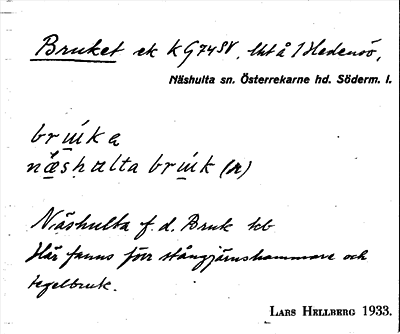 Bruket ek K G74SV, tht å 1 Hedensö,
Näshulta sn. Österrekarne hd. Söderm. l.
Näshulta f. d. Bruk tb
Här fanns förr stångjärnshammare och
tegelbruk.
LARS HELLBERG 1933.